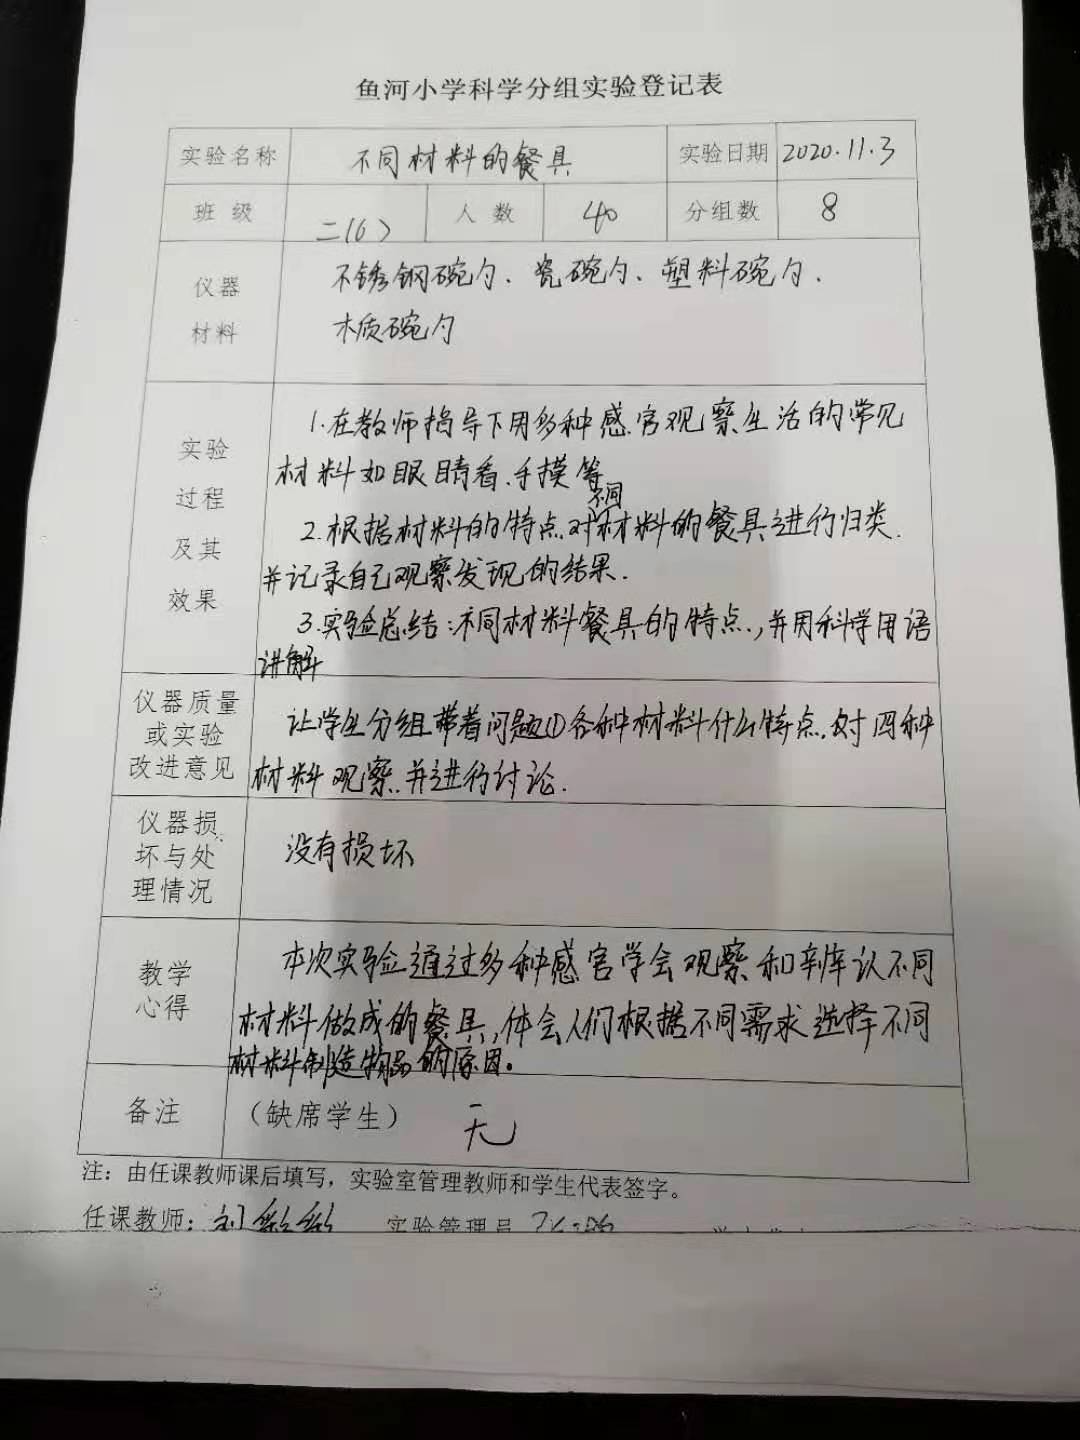 鱼河小学科学分组实验登记表
实验名称 不同材料的餐具 实验日期 2020.11.3
班 级 二(6) 人 数 40 分组数 8
仪器 材料
不锈钢碗勺、瓷碗勺、塑料碗勺、
木质碗勺
实验 过程 及其 效果
1.在教师指导下用多种感官观察生活的常见
材料如眼睛看、手摸等
2.根据材料的特点,对不同材料的餐具进行归类.
并记录自己观察发现的结果.
3.实验总结:不同材料餐具的特点.,并用科学用语
讲解
仪器质量
或实验
改进意见
让学生分组带着问题①各种材料什么特点,对四种
材料观察.并进行讨论.
仪器损
坏与处
理情况
没有损坏
教学
心得
本次实验通过多种感官学会观察和辨认不同
材料做成的餐具,体会人们根据不同需求选择不同
材料制造物品的原因。
备注 (缺席学生) 无
注:由任课教师课后填写,实验室管理教师和学生代表签字。
任课教师: 刘彩彩 实验管理员